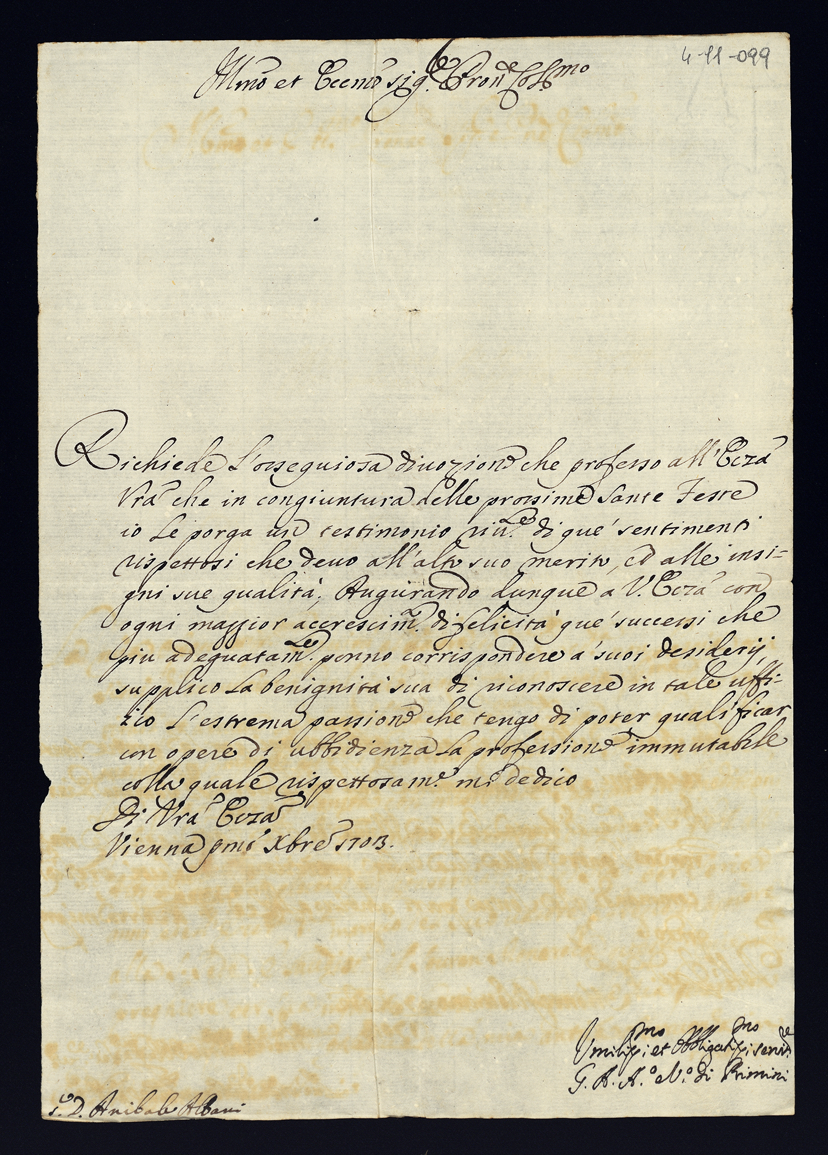 4-11-099
Illmo et Eccmo Sigre Prone Colmo
Richiede l'ossequiosa divozione che professo all'Ecza
Vra che in congiuntura delle prossime Sante Feste
io Le porga un testimonio di que' sentimenti
rispettosi che devo all'alto suo merito, ed alle insi-
gni sue qualità; Augurando dunque a V. Ecza con
ogni maggior accrescimto. di felicità que' successi che
più adeguatame. ponno corrispondere a' suoi desiderij,
supplico La benignità sua di riconoscere in tale uffi-
zio L'estrema passione che tengo di poter qualificar
con opere di ubbidienza La professione immutabile
colla quale rispettosame. mi dedico
Di Vra Ecza
Vienna pmo Xbre 1703.
Umilissmo et Obbligatissmo serv.
G. A. A.o V.o di Rimini
D. Anibale Albani